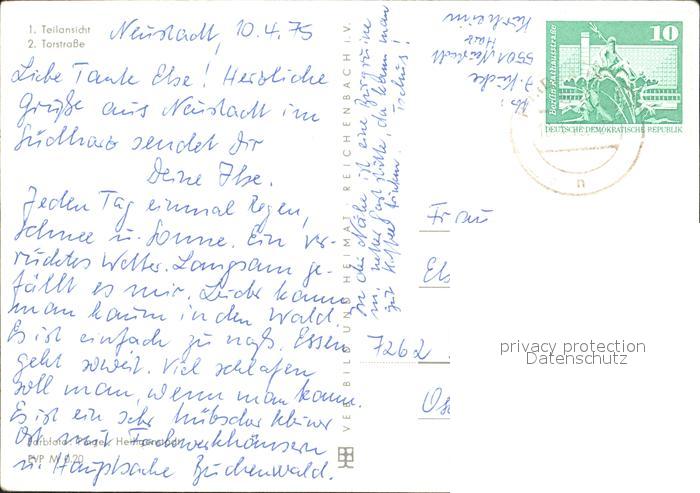 1. Teilansicht
2. Torstraße
Neustadt, 10.4.75
Liebe Tante Else! Herzliche
Grüße aus Neustadt im
Südharz sendet Dir
Deine Ilse.
Jeden Tag einmal Regen,
Schnee u. Sonne. Ein ver-
rücktes Wetter. Langsam ge-
fällt es mir. Leider kann
man kaum in den Wald.
Es ist einfach zu naß. Essen
geht soweit. Viel schlafen
soll man, wenn man kann.
Es ist ein sehr hübscher kleiner
Ort mit Fachwerkhäusern
u. Hauptsache Buchenwald.
In der Nähe ist eine Burgruine
m. netter Gaststätte, da kann man
gut Kaffee trinken. Tschüs!
Abs:
5501 Neustadt
Harz
Kurheim
VERLAG BILD UND HEIMAT · REICHENBACH I. V.
EVP M 0,20
10
Berlin, Rathausstraße
DEUTSCHE DEMOKRATISCHE REPUBLIK
n
Frau
Els
7262
Os
privacy protection
Datenschutz